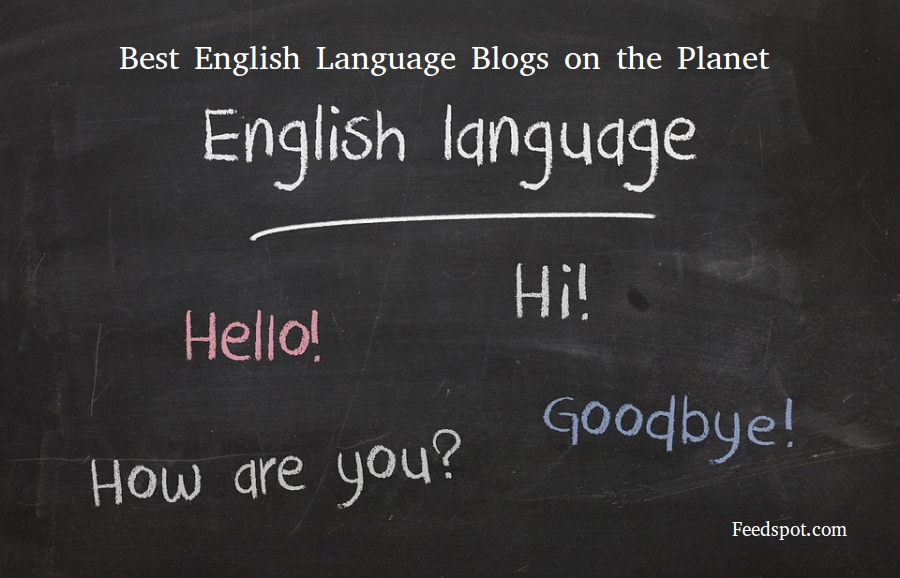 Best English Language Blogs on the Planet
English language
Hi!
Hello!
Goodbye!
How are you?
Feedspot.com